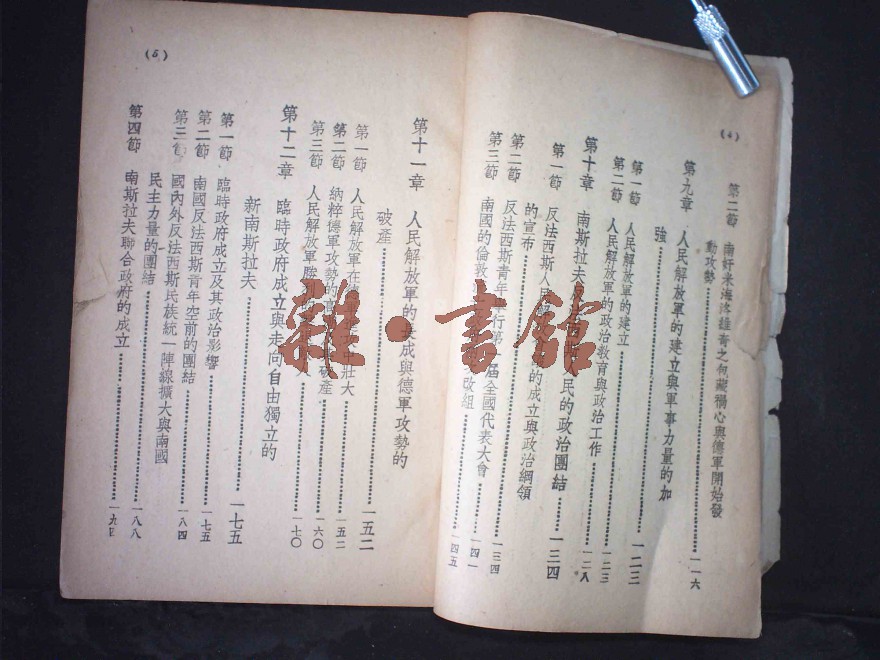 (4)
第二節 南奸米海洛維奇之包藏禍心與德軍開始發
動攻勢 一一六
第九章 人民解放軍的建立與軍事力量的加
強 一二三
第一節 人民解放軍的建立 一二三
第二節 人民解放軍的政治教育與政治工作 一二八
第十章 南斯拉夫 人民的政治團結 一三四
第一節 反法西斯人民 的成立與政治綱領
的宣布 一三四
第二節 反法西斯青年舉行第 屆全國代表大會 一四一
第三節 南國的倫敦 改組 一四五
(5)
第十一章 人民解放軍的 成與德軍攻勢的
破產 一五二
第一節 人民解放軍在 中壯大 一五二
第二節 納粹德軍攻勢的 破產 一六〇
第三節 人民解放軍勝利的 一七〇
第十二章 臨時政府成立與走向自由獨立的
新南斯拉夫 一七五
第一節 臨時政府成立及其政治影響 一七五
第二節 南國反法西斯青年空前的團結 一八四
第三節 國內外反法西斯民族統一陣線擴大與南國
民主力量的團結 一八八
第四節 南斯拉夫聯合政府的成立
雜·書館